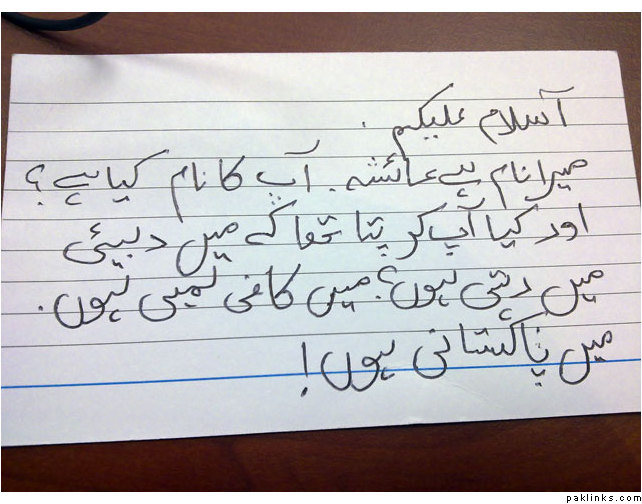 آسلام علیکم۔
میرا نام ہے عائشہ۔ آپ کا نام کیا ہے؟
اور کیا آپ کر پتا تھا کے میں دبیئی
میں رہتی ہوں؟ میں کافی لمبی ہوں۔
میں پاکستانی ہوں!
paklinks.com